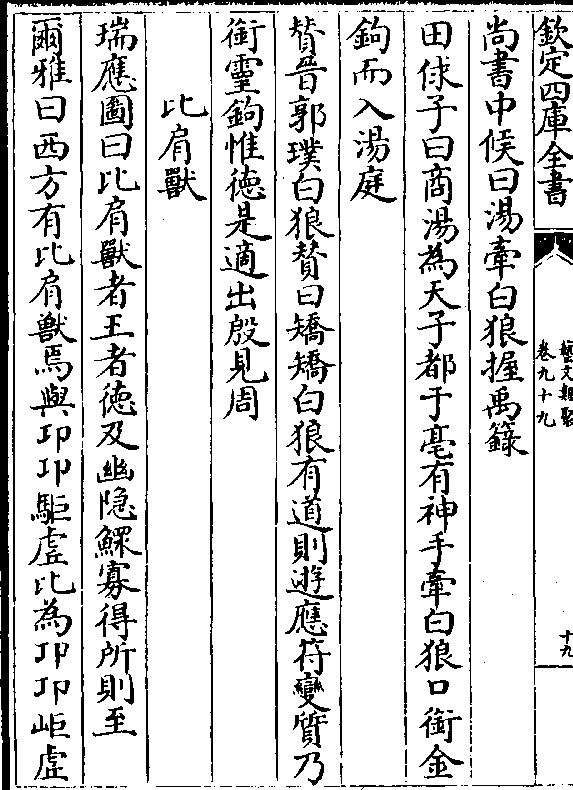 欽定四庫全書
藝文類聚
卷九十九
十九
尚書中候曰湯牽白狼握禹籙
田俅子曰商湯為天子都于亳有神手牽白狼口銜金
鉤而入湯庭
贊晉郭璞白狼贊曰矯矯白狼有道則遊應符變質乃
銜靈鉤惟德是適出殷見周
比肩獸
瑞應圖曰比肩獸者王者德及幽隠鰥寡得所則至
爾雅曰西方有比肩獸焉與卭卭駏虛比為卭卭岠虛